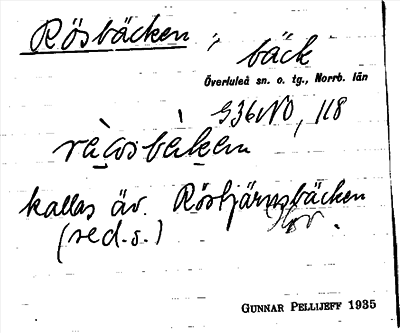 Rösbäcken ; bäck
Överluleå sn. o. tg., Norrb. län
936NO, 118
kallas äv. Röstjärnsbäcken
(red. s.)
GUNNAR PELLIJEFF 1935